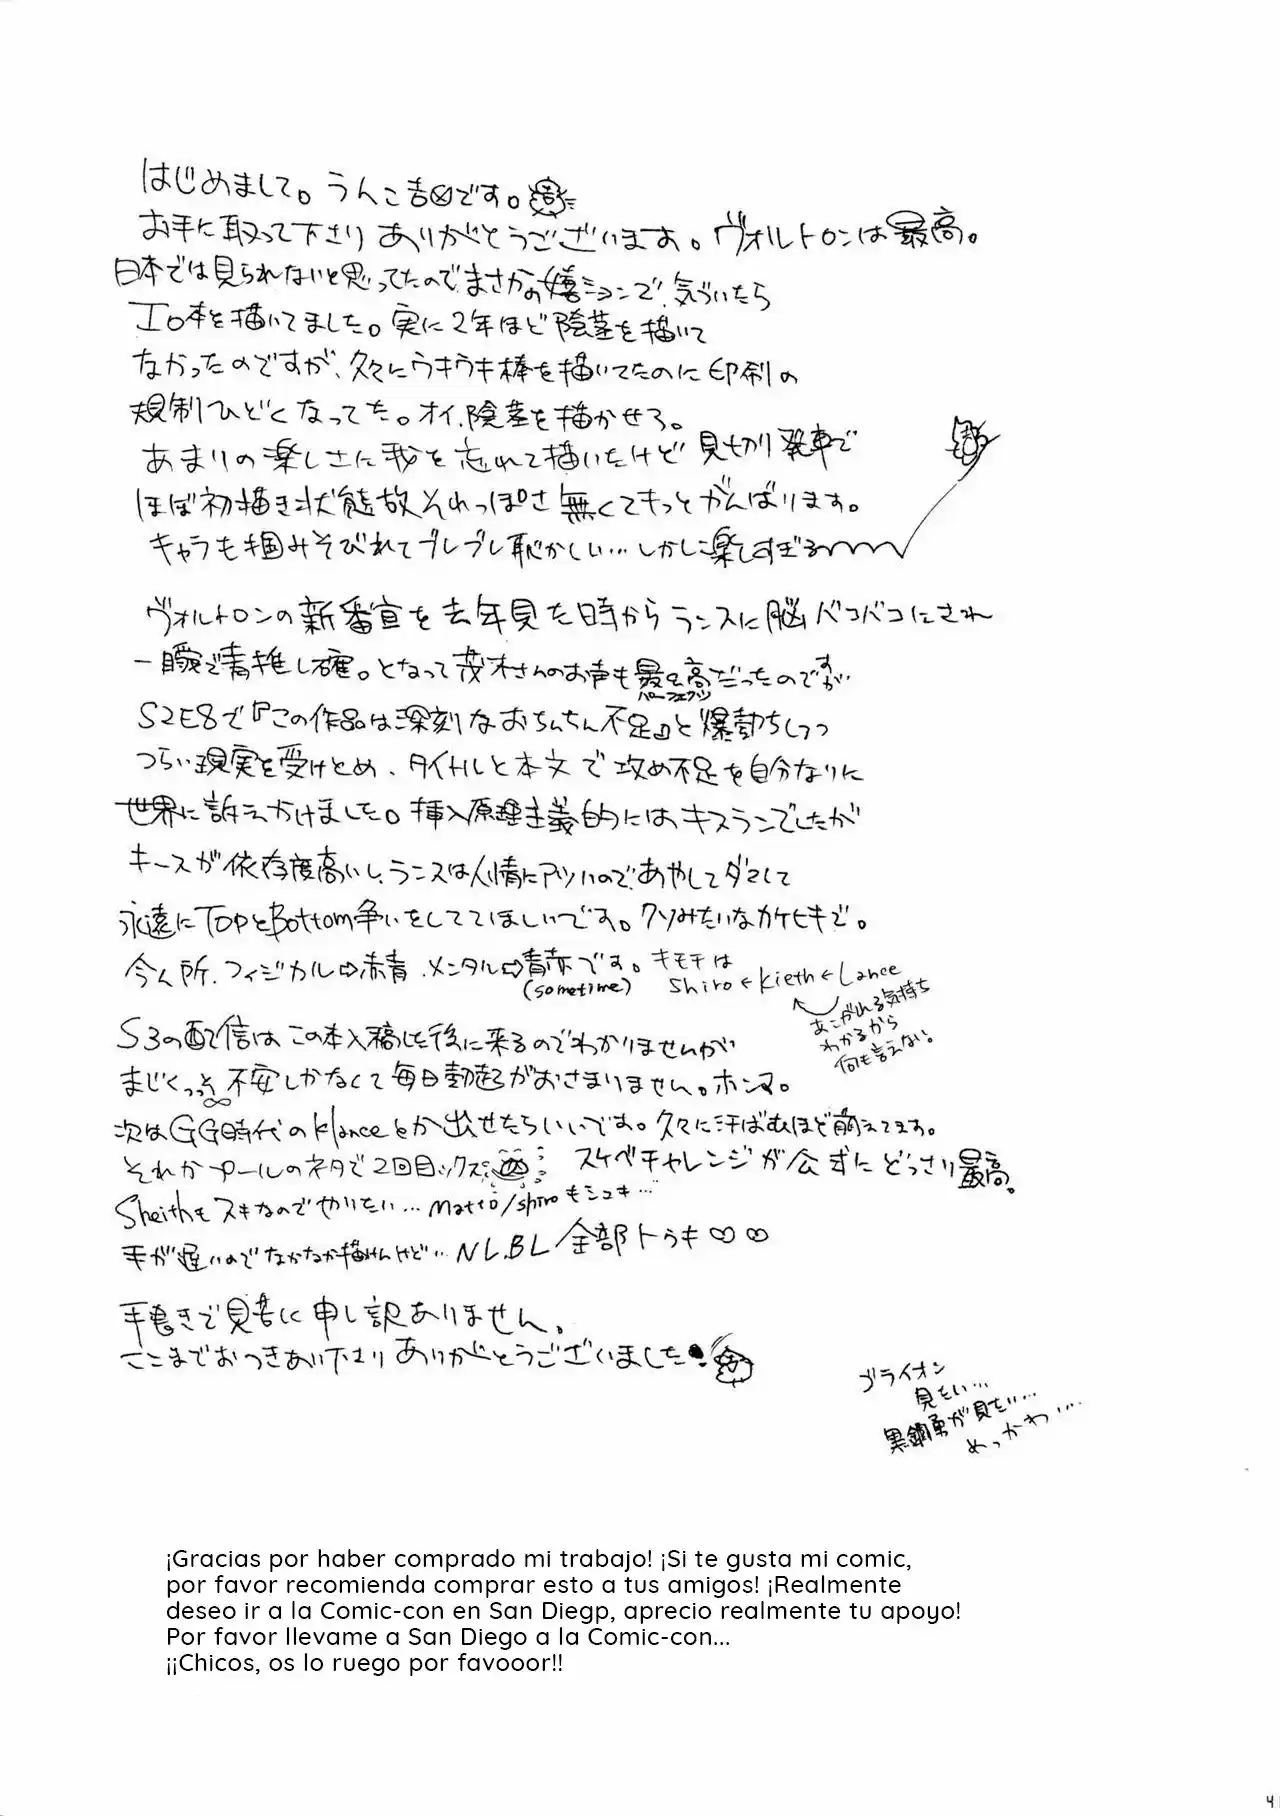 はじめまして。うんこ吉⊗です。
お手に取って下さり ありがとうございます。ヴォルトロンは最高。
日本では見られないと思ってたのでまさかの嬉ションで、気づいたら
エロ本を描いてました。実に2年ほど陰茎を描いて
なかったのですが、久々にウキウキ棒を描いてたのに印刷の
規制ひどくなってた。オイ、陰茎を描かせろ。
あまりの楽しさに我を忘れて描いたけど 見切り発車で
ほぼ初描き状態故それっぽさ無くてもっとがんばります。
キャラも掴みそびれてブレブレ恥かしい…しかしこ楽しすぎる
ヴォルトロンの新番宣を去年見た時からランスに脳バコバコにされ
一瞬で青推し確。となって茂木さんのお声も最&高だったのですが、
パーフェクツ
S2E8で『この作品は深刻なおちんちん不足』と爆勃ちしつつ
つらい現実を受けとめ、タイトルと本文で攻め不足を自分なりに
世界に訴えかけました。挿入原理主義的には、キスランでしたが
キースが依存度高いし、ランスは人情にアツいので、あやしてダマして
永遠にTopとBottom争いをしててほしいです。クソみたいなカケヒキで。
今ん所、フィジカル⇨赤青、メンタル⇨青赤です。キモチは
(sometime)
Shiro←Kieth←Lance
あこがれる気持ち
わかるから
何も言えない。
S3の配信はこの本入稿した後に来るのでわかりませんが
まじくっそ不安しかなくて毎日勃起がおさまりません。ホンマ。
次はGG時代のklanceとか出せたらいいです。久々に汗ばむほど萌えてます。
それかプールのネタで2回目ックス スケベチャレンジが公式にどっさり最高。
Sheithもスキなのでやりたい…matto/shiroもシュキ…
手が遅いのでなかなか描けんけど…NL.BL全部トゥキ♡♡
手書きで見苦に申し訳ありません。
ここまでおつきあい下さりありがとうございました!
ゴライオン
見たい…
黒鋼勇が見たい…
めっかわ…
¡Gracias por haber comprado mi trabajo! ¡Si te gusta mi comic,
por favor recomienda comprar esto a tus amigos! ¡Realmente
deseo ir a la Comic-con en San Diegp, aprecio realmente tu apoyo!
Por favor llevame a San Diego a la Comic-con...
¡¡Chicos, os lo ruego por favooor!!
4